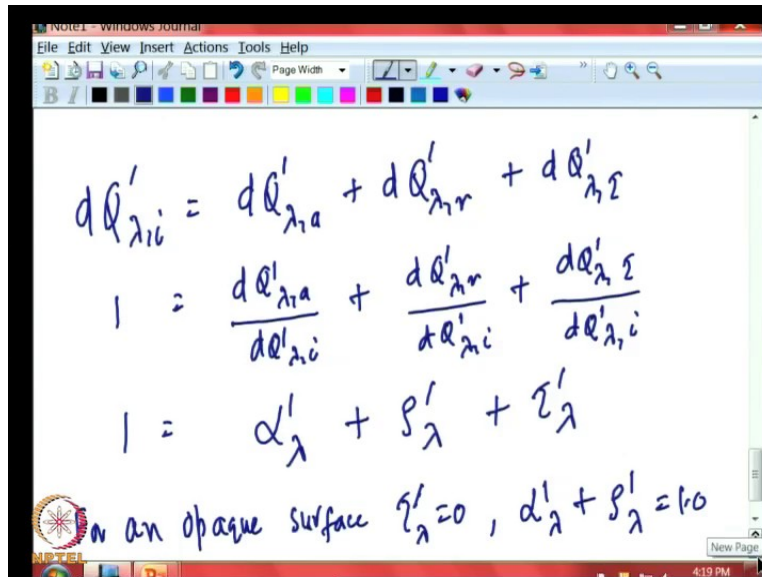 Note1 - Windows Journal
File Edit View Insert Actions Tools Help
Page Width
B I
dQ'λ,i = dQ'λ,a + dQ'λ,r + dQ'λ,τ
1 = dQ'λ,a/dQ'λ,i + dQ'λ,r/dQ'λ,i + dQ'λ,τ/dQ'λ,i
1 = α'λ + ρ'λ + τ'λ
an opaque surface τ'λ=0, α'λ + ρ'λ = 1.0
NPTEL
New Page
4:19 PM